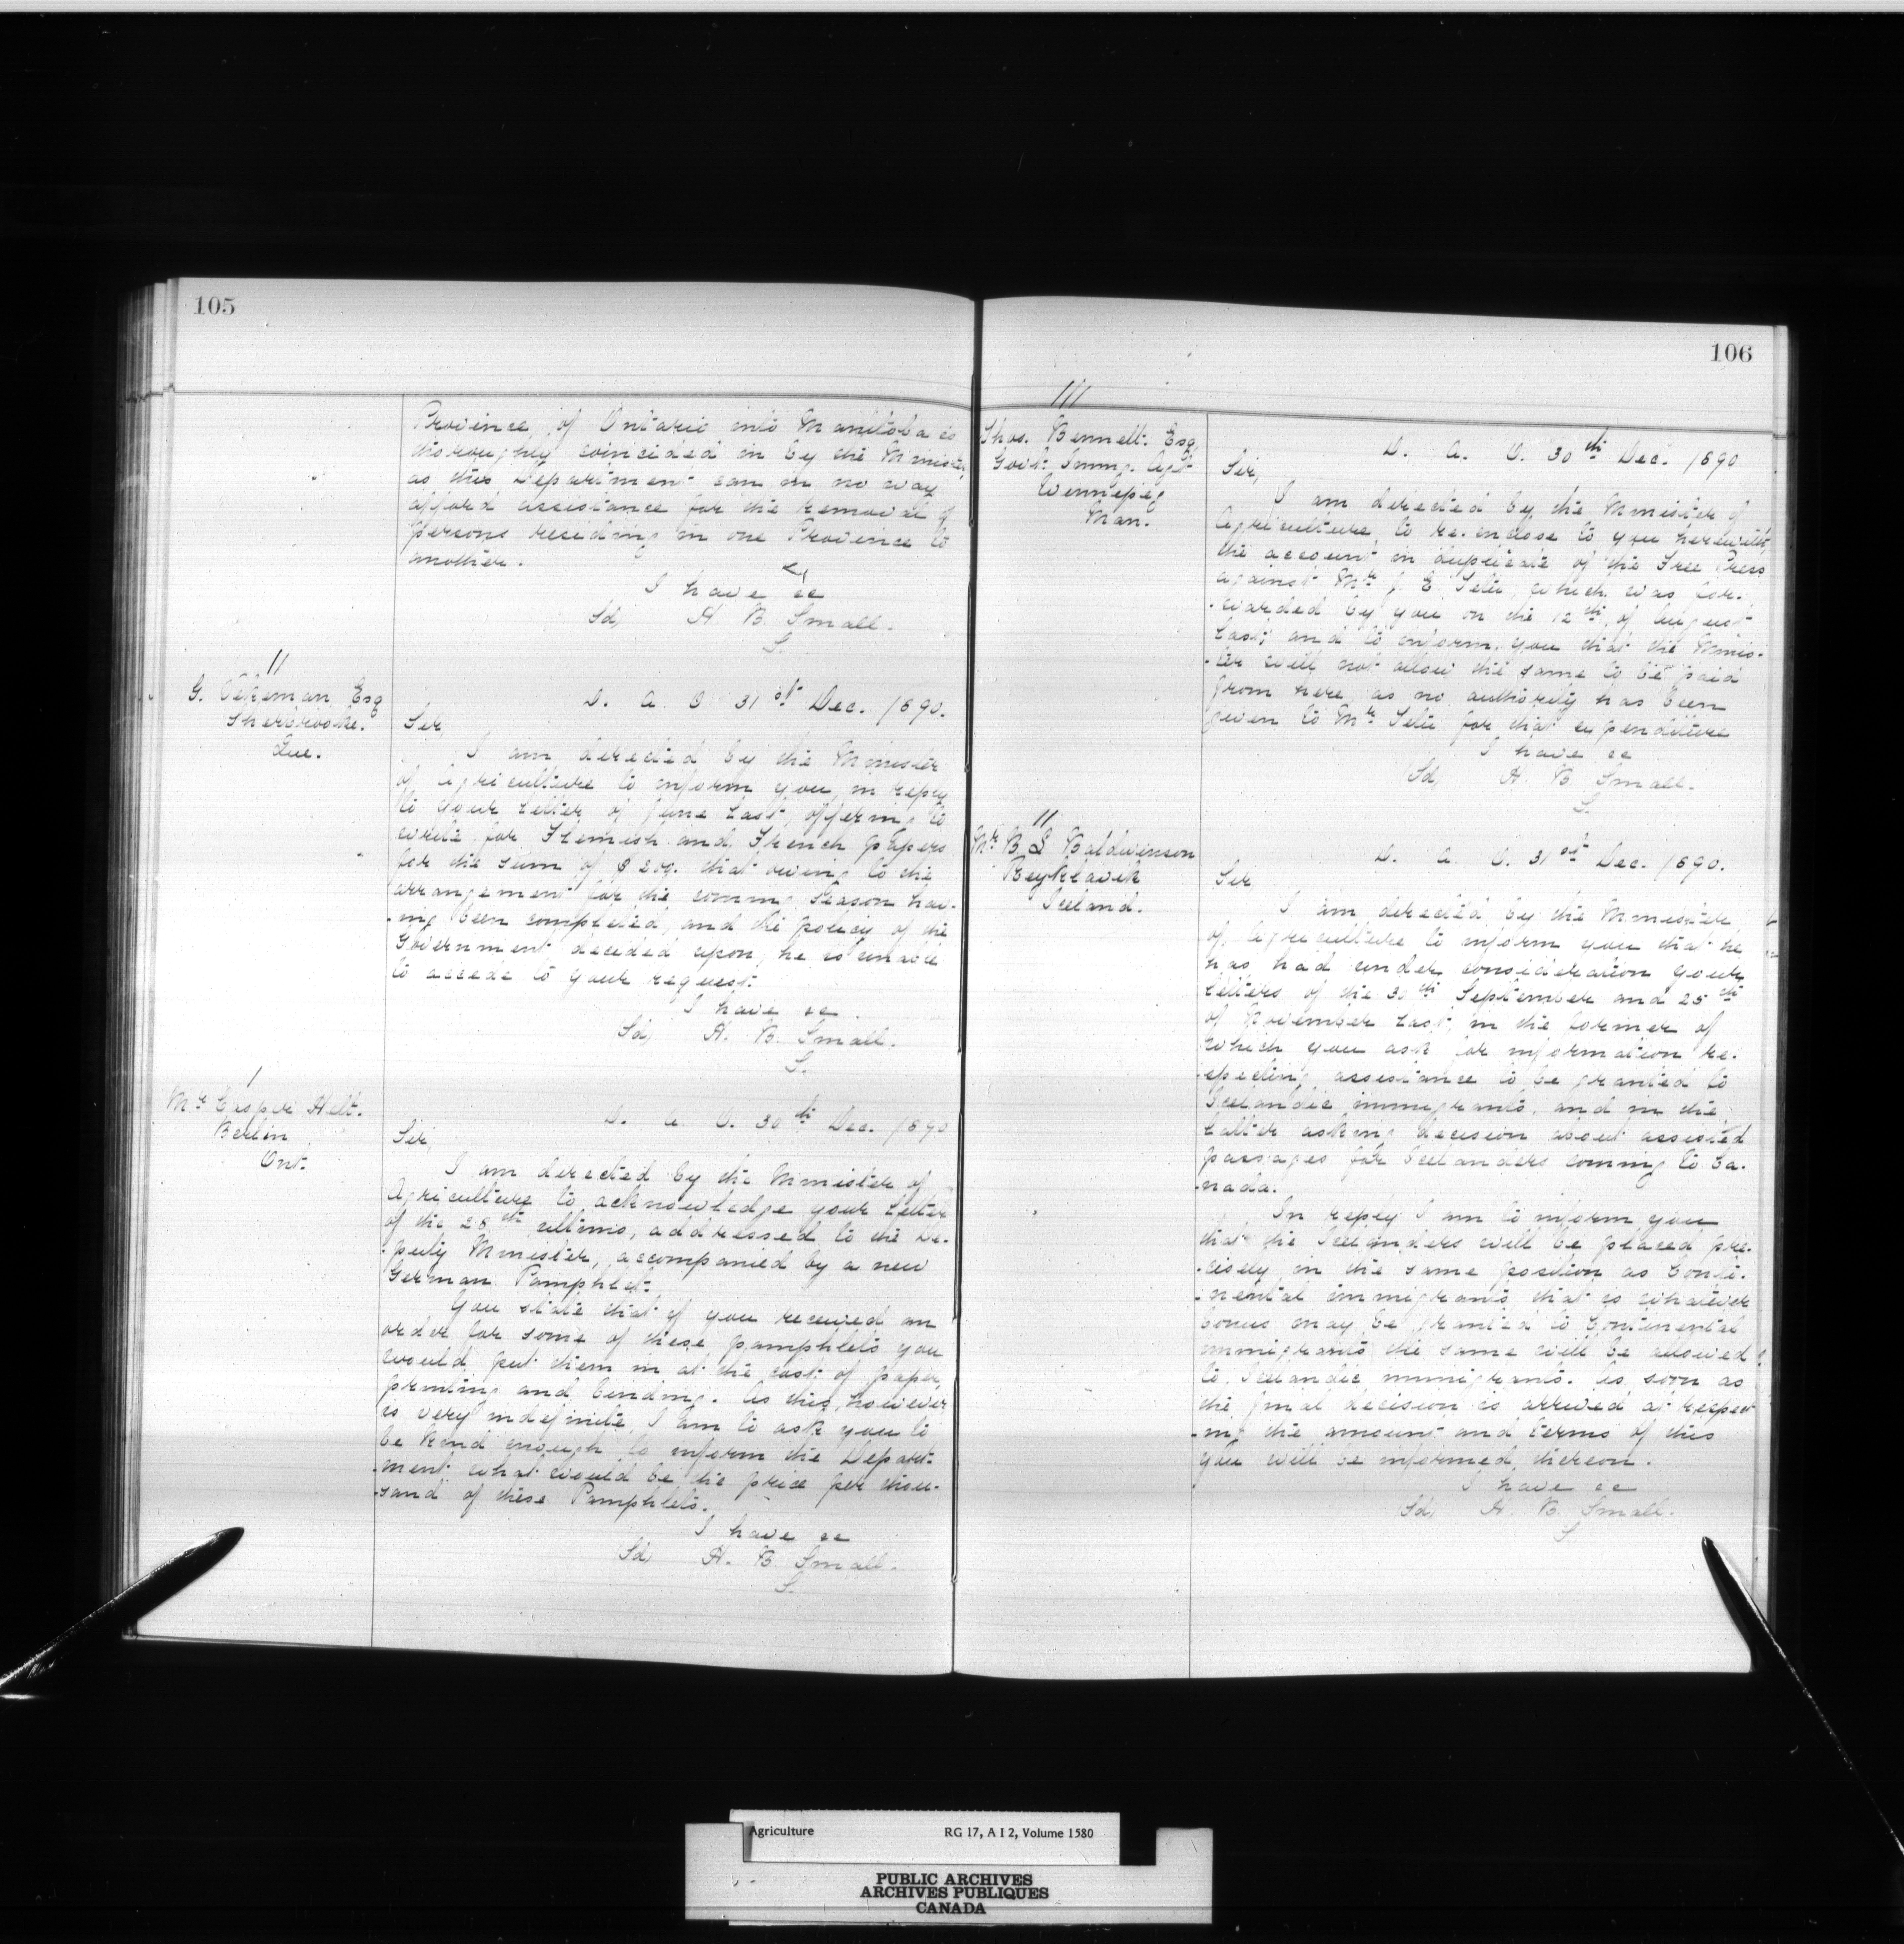 105
Province of Ontario into Manitoba is
thoroughly coincided in by the Minister,
as this Department can in no way
afford assistance for the removal of
persons residing in one Province to
another.
I have &c
Sd, H. B. Small.
S.
//
G. Vekeman Esq
Sherbrooke.
Que.
D. A. O 31st Dec. 1890.
Sir,
I am directed by the Minister
of Agriculture to inform you, in reply
to your letter of June last, offering to
write for Flemish and French papers
for the sum of $200. that owing to the
arrangement for the coming Season hav-
-ing been completed, and the policy of the
Government decided upon, he is unable
to accede to your request.
I have &c.
(Sd) H. B. Small.
S.
/
Mr Casper Helt.
Berlin
Ont.
D. A. O. 30th Dec. 1890
Sir,
I am directed by the Minister of
Agriculture to acknowledge your letter
of the 28th ultimo, addressed to the De-
-puty Minister, accompanied by a new
German Pamphlet.
You state that if you received an
order for some of these pamphlets you
would put them in at the cost of paper,
printing and binding. As this, however
is very indefinite, I am to ask you to
be kind enough to inform the Depart-
-ment what would be the price per thou-
-sand of these Pamphlets.
I have &c
(Sd) H. B. Small.
S.
106
///
Thos. Bennett. Esq
Govt. Immg. Agt
Winnipeg
Man.
D. A. O. 30th Dec. 1890
Sir,
I am directed by the Minister of
Agriculture, to re-enclose to you herewith,
the account in duplicate of the Free Press
against Mr J. E. Tetu, which was for-
-warded by you on the 12th of August
last; and to inform you that the Minis-
-ter will not allow the same to be paid
from here, as no authority has been
given to Mr Tetu for that expenditure
I have &c
(Sd) H. B. Small.
S.
//
Mr B L Baldwinson
Reykiavik
Iceland.
D. A. O. 31st Dec. 1890.
Sir
I am directed by the Minister
of Agriculture to inform you that he
has had under consideration your
letters of the 30th September and 25th
of November last, in the former of
which you ask for information re-
-specting assistance to be granted to
Icelandic immigrants, and in the
latter asking decision about assisted
passages for Icelanders coming to Ca-
-nada.
In reply I am to inform you
that the Icelanders will be placed pre-
-cisely in the same position as Conti-
-nental immigrants, that is whatever
bonus may be granted to Continental
immigrants the same will be allowed
to Icelandic immigrants. As soon as
the final decision is arrived at respect
-ing the amount and terms of this
you will be informed thereon.
I have &c
(Sd) H. B. Small.
S
Agriculture RG 17, A I 2, Volume 1580
PUBLIC ARCHIVES
ARCHIVES PUBLIQUES
CANADA